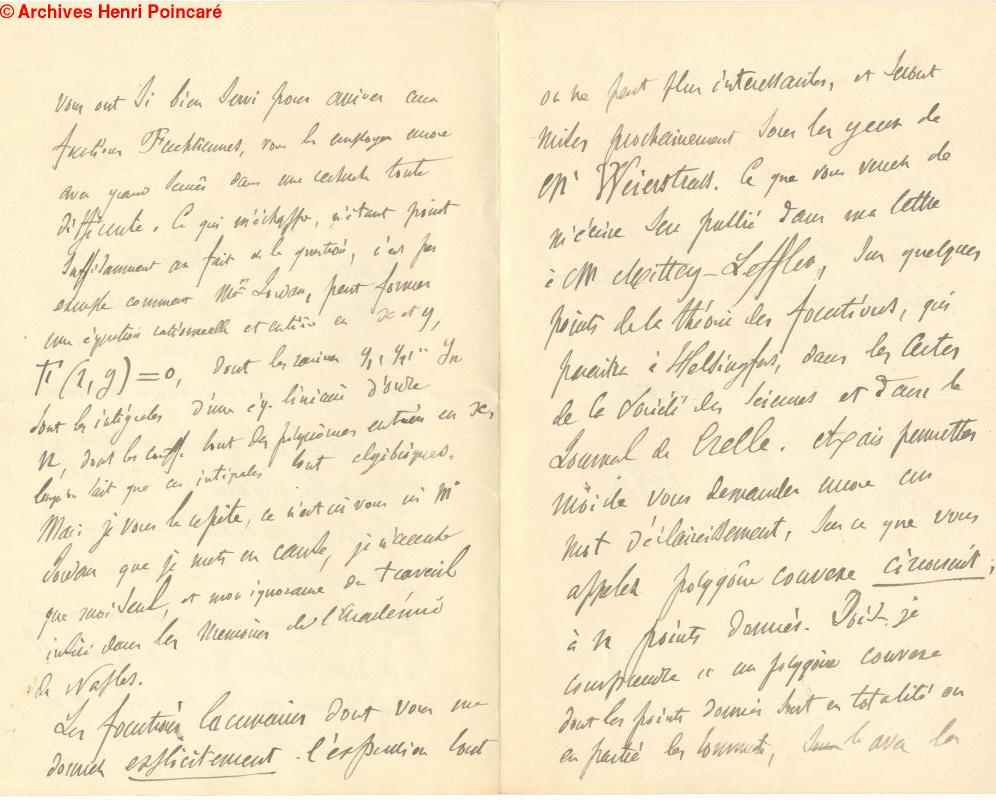 © Archives Henri Poincaré
vous ont si bien servi pour arriver aux
fonctions Fuchsiennes, vous les employez encore
avec grand succès dans une recherche toute
différente. Ce qui m'échappe, n'étant point
suffisamment au fait de la question, c'est par
exemple comment Mr Jordan, peut former
une équation rationnelle et entière en x et y,
F(x, y) = 0, dont les racines y1, y2,.. yn
sont les intégrales d'une éq. linéaire d'ordre
n, dont les coeffts sont des polynômes entiers en x,
lorsqu'on sait que ces intégrales sont algébriques.
Mais je vous le répète, ce n'est ni vous ni Mr
Jordan que je mets en cause, je n'accuse
que moi seul, et mon ignorance du travail
inséré dans les Mémoires de l'Académie
de Naples.
Les fonctions lacunaires dont vous me
donnez explicitement l'expression sont
on ne peut plus intéressantes, et seront
mises prochainement sous les yeux de
Mr Weierstrass. Ce que vous venez de
m'écrire sera publié dans ma lettre
à Mr Mittag-Leffler, sur quelques
points de la théorie des fonctions, qui
paraitra à Helsingfors, dans les Actes
de la Société des Sciences et dans le
Journal de Crelle. Mais permettez
moi de vous demander encore un
mot d'éclaircissement, sur ce que vous
appelez polygône convexe circonscrit,
à n points donnés. Dois-je
comprendre un polygône convexe
dont les points donnés sont en totalité ou
en partie les sommets, avec la